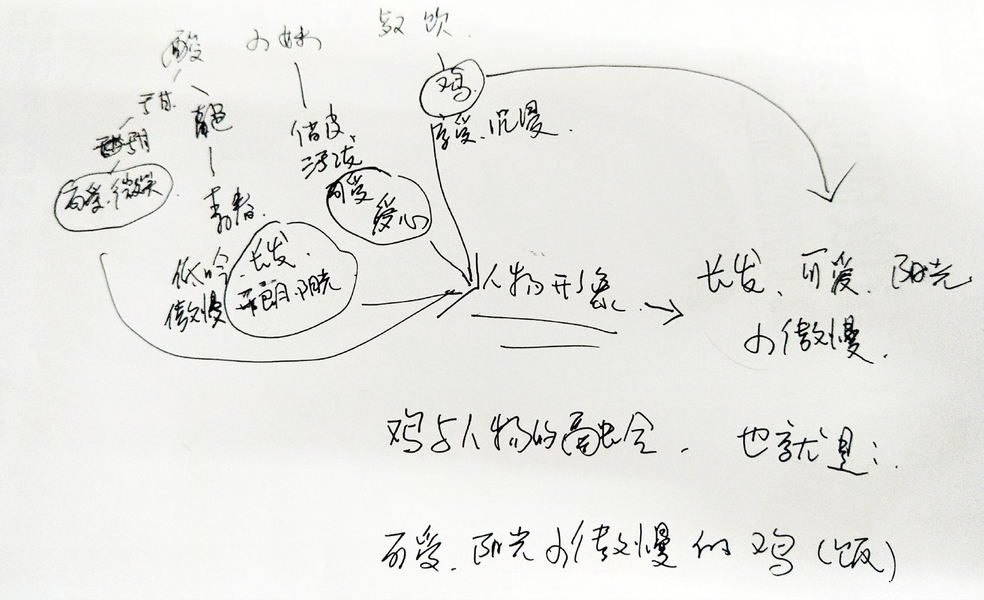 酸 小妹 叙饮
鸡
可爱、微笑
青春
俏皮、
活泼
可爱
爱心
享受、沉浸.
长发、
开朗、阳光
低吟
傲慢
人物形象 → 长发、可爱、阳光
小傲慢.
鸡与人物的融合. 也就是:
可爱、阳光小傲慢的鸡(饭)